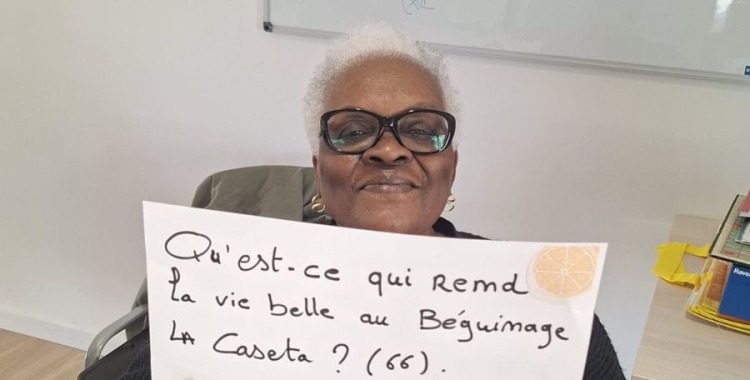 Qu'est-ce qui Remd
la vie belle au Béguimage
LA Caseta ? (66).
Raven